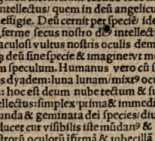 intellectus/ quem in deū angelicu
effigie. Deū cernit per speciē/ ide
ferme secus nostro intellect
aculos vultus nostris oculis dem
deū sine specie & imagine vt n
m speculum. Humanus vero cū
dyadem: luna lunam/ mixe oc
: hoc est deum nube tectum &
tellectus: simplex/ prima & immedi
unda & geminata dei species/ diu
lucet cur visibilis iste mūdan &
oculorū & nubecilla